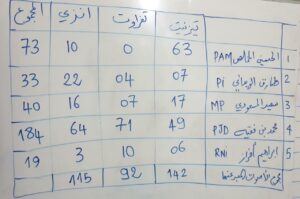 تيزنت تغزاوت انزي المجموع
1 الحسين المخلص PAM 63 0 10 73
2 طارق PI 07 04 22 33
3 سعيد السعودي MP 17 07 16 40
4 محمد بن فقيه PJD 49 71 64 184
5 ابراهيم RNI 06 10 3 19
مجموع الأصوات المعبر عنها 142 92 115